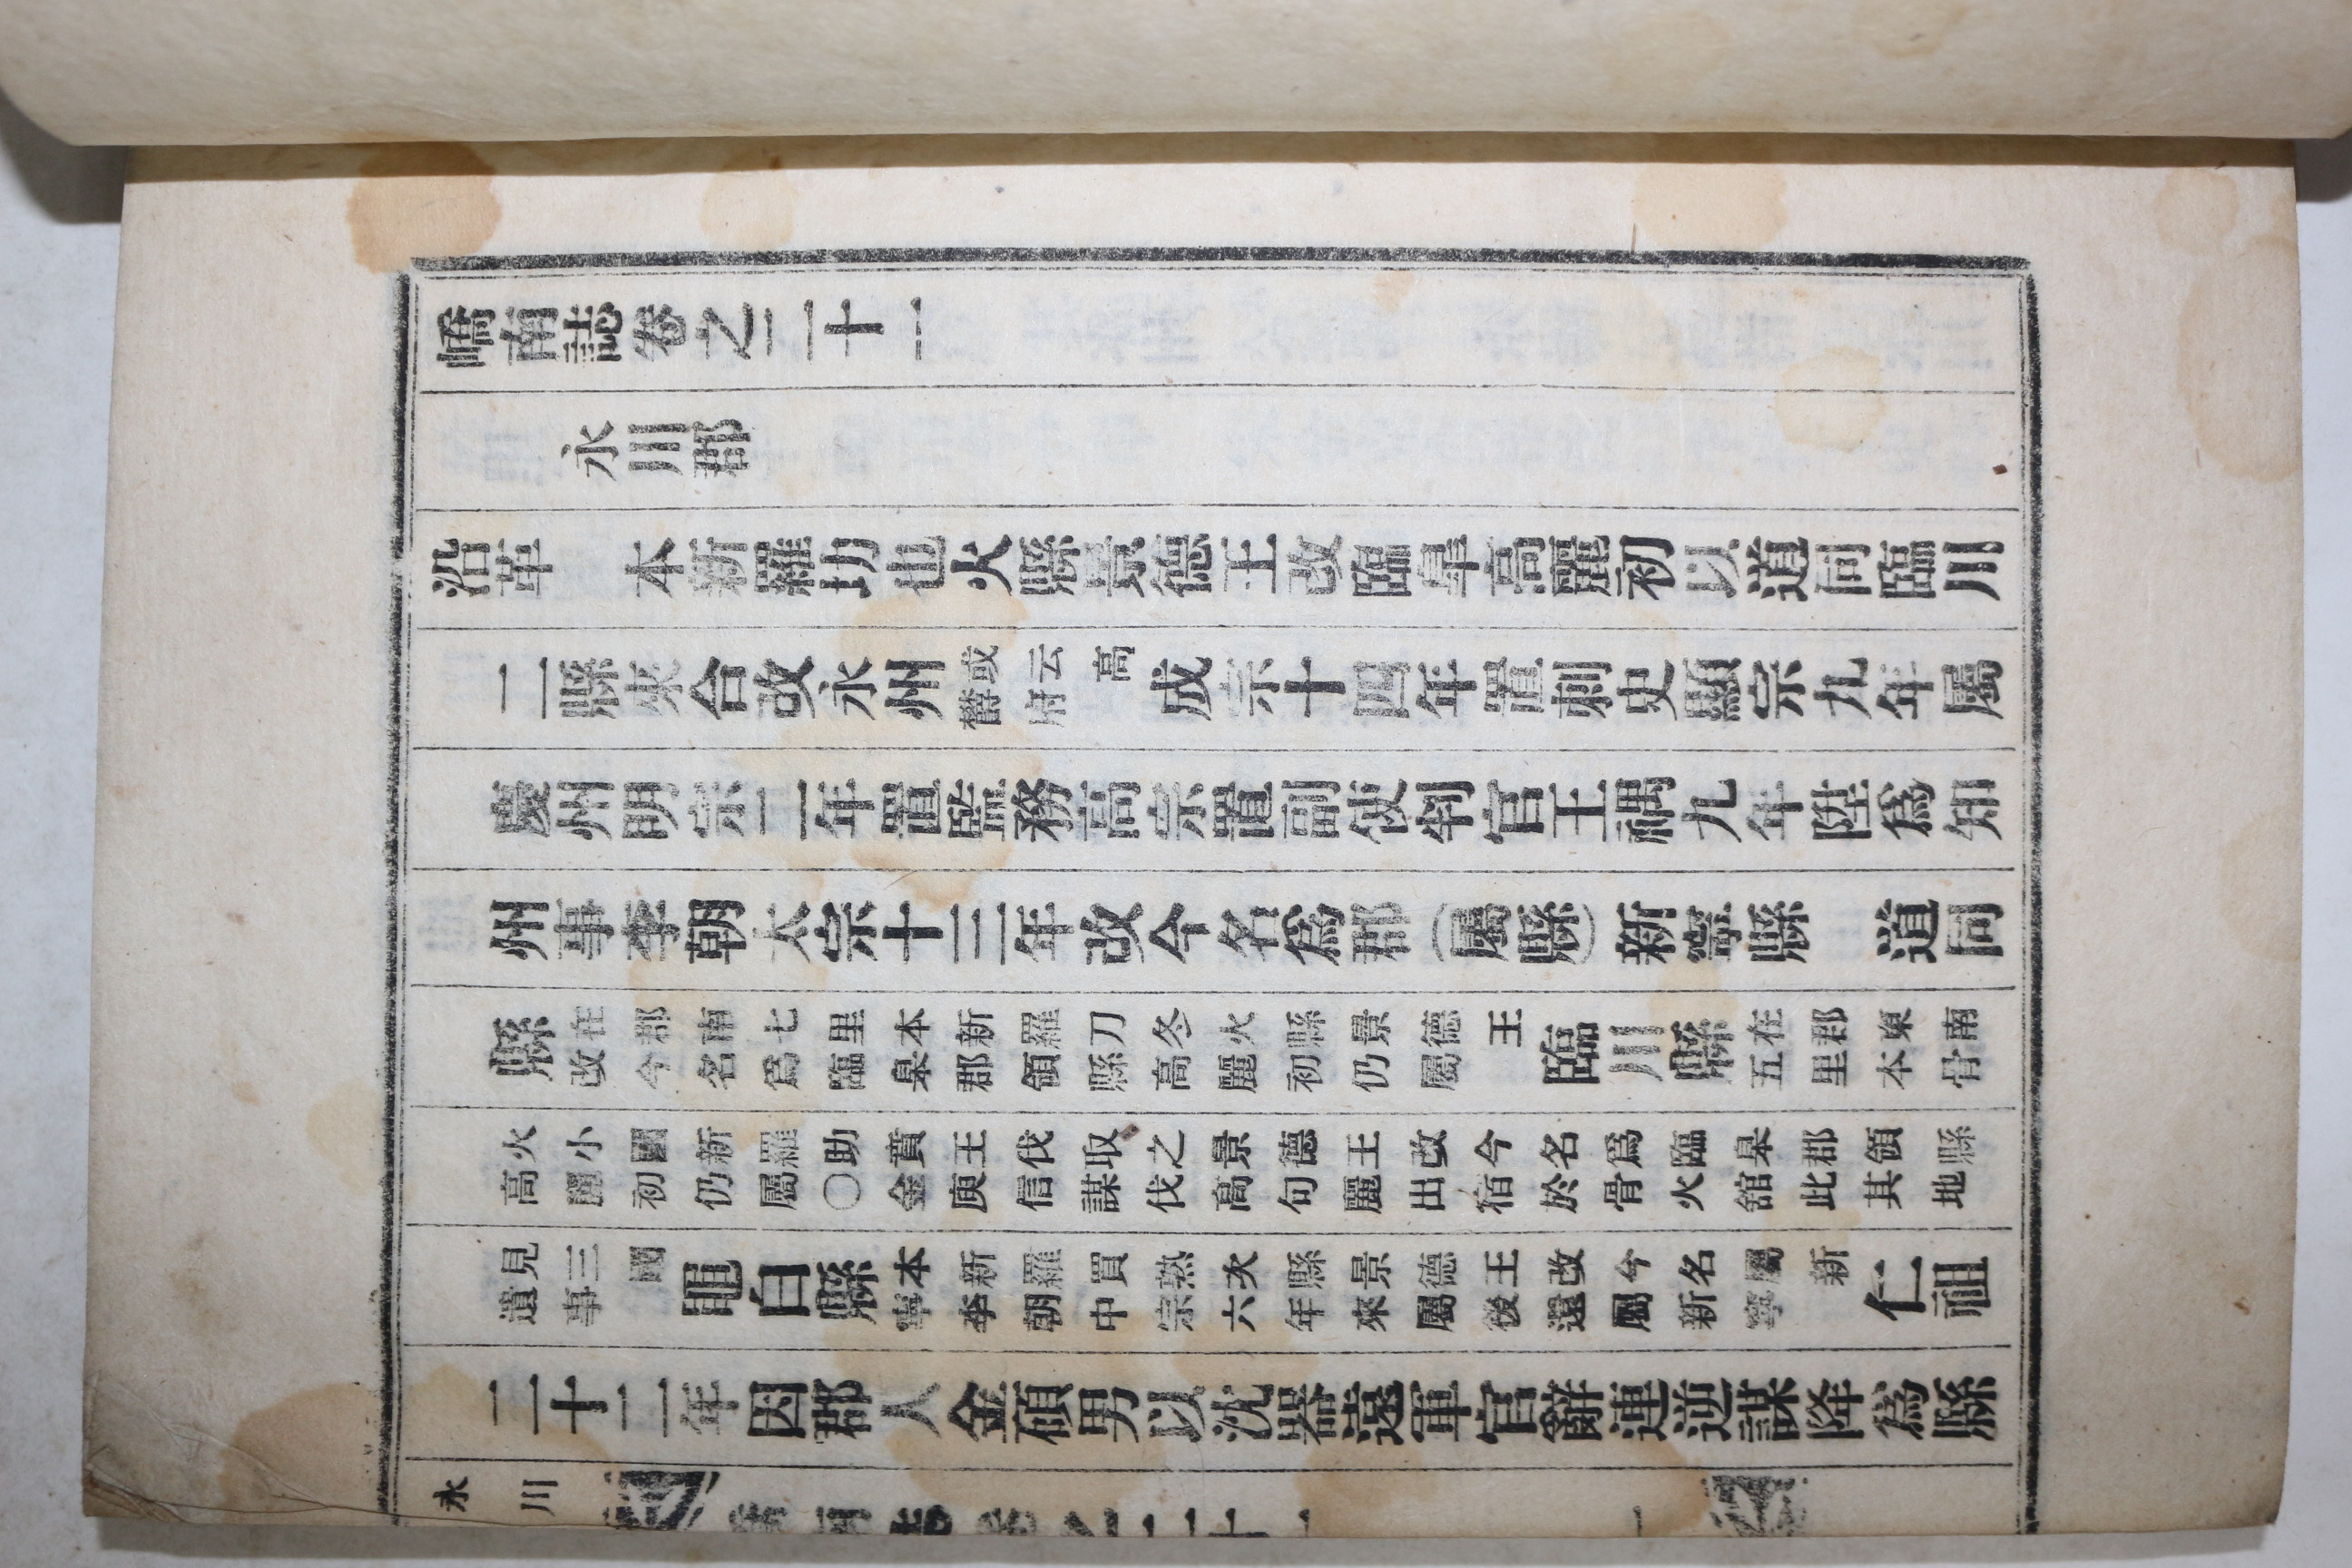 嶠南誌卷之二十一
永川郡
沿革 本新羅切也火縣景德王改臨皐高麗初以道同臨川
二縣來合改永州或云高欝府成宗十四年置刺史顯宗九年屬
慶州明宗二年置監務高宗置副使判官王禑九年陞爲知
州事李朝太宗十三年改今名爲郡(屬縣)新寧縣 道同
縣在郡南七里本新羅刀冬火縣景德王改今名爲臨皐郡領縣高麗初仍屬臨川縣在郡東南五里本骨
火小國新羅助賁王伐取之景德王改今名爲臨皐郡領縣高麗初仍屬〇金庾信謀伐高句麗出宿於骨火舘此其地
見三國遺事黽白縣本新羅買熟次縣景德王改今名屬新寧李朝中宗六年來屬後還屬新寧仁祖
二十二年因郡人金碩男以沈器遠軍官辭連逆謀降爲縣
永川 嶠南誌卷之二十一 一